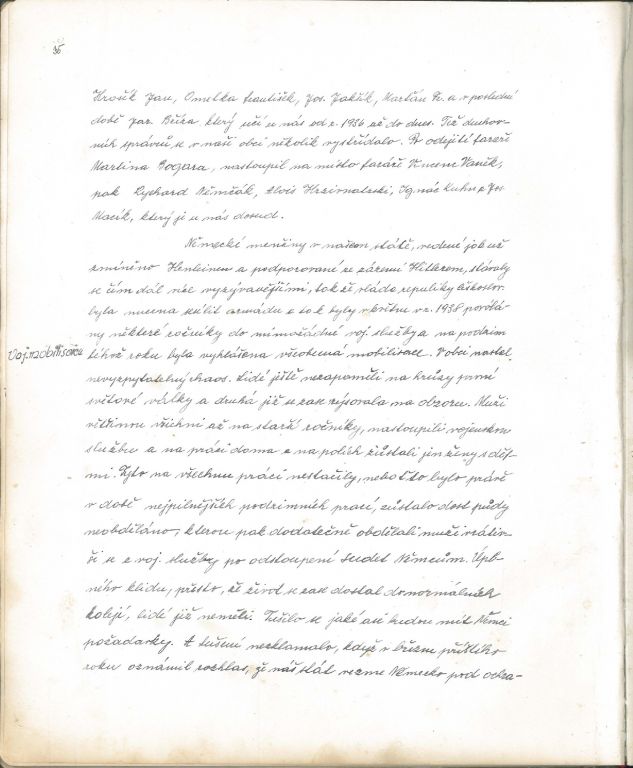 35
Hroník Jan, Omelka František, Jos. Jakšík, Martán Fr. a v poslední
době Jar. Bříza který učí u nás od r. 1936 až do dnes. Též duchov-
ních správců se v naší obci několik vystřídalo. Po odejití faráře
Martina Bogara, nastoupil na místo faráře Vaněk,
pak Rychard Němčák, Alois, Ignác Kuhn a Jos.
Macík, který je u nás dosud.
Německé menšiny v našem státě, vedené jak už
zmíněno Henleinem a podporované ze zázemí Hitlerem, stávaly
se čím dál více vyzývavějšími, takže vláda republiky československ.
byla nucena sesílit armádu a tak byly v květnu v r. 1938 povolá-
ny některé ročníky do mimořádné voj. služby a na podzim
Voj. mobilisace
téhož roku byla vyhlášena všeobecná mobilisace. V obci nastal
nevyzpytatelný chaos. Lidé ještě nezapoměli na hrůzy první
světové války a druhá již se zase rýsovala na obzoru. Muži
většinou všichni až na starší ročníky, nastoupili vojenskou
službu a na práci doma a na polích zůstali jen ženy s dět-
mi. Tyto na všechnu práci nestačily, neboť to bylo právě
v době nejpilnějších podzimních prací, zůstalo dost půdy
neobděláno, kterou pak dodatečně obdělali muži vrátiv-
ší se z voj. služby po odstoupení Sudet Němcům. Úpl-
ného klidu, přesto, že život se zase dostal do normálních
kolejí, lidé již neměli. Tušilo se jaké asi budou mít Němci
požadavky. A tušení nezklamalo, když v březnu příštího
roku oznámil rozhlas, že náš stát vezme Německo pod ochra-